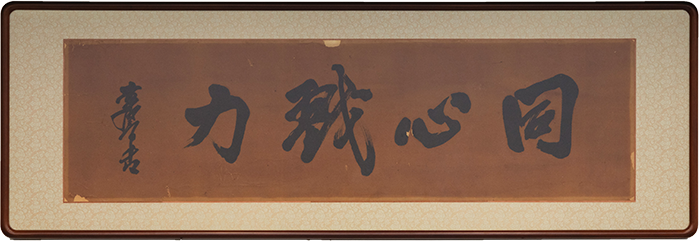 同心戮力